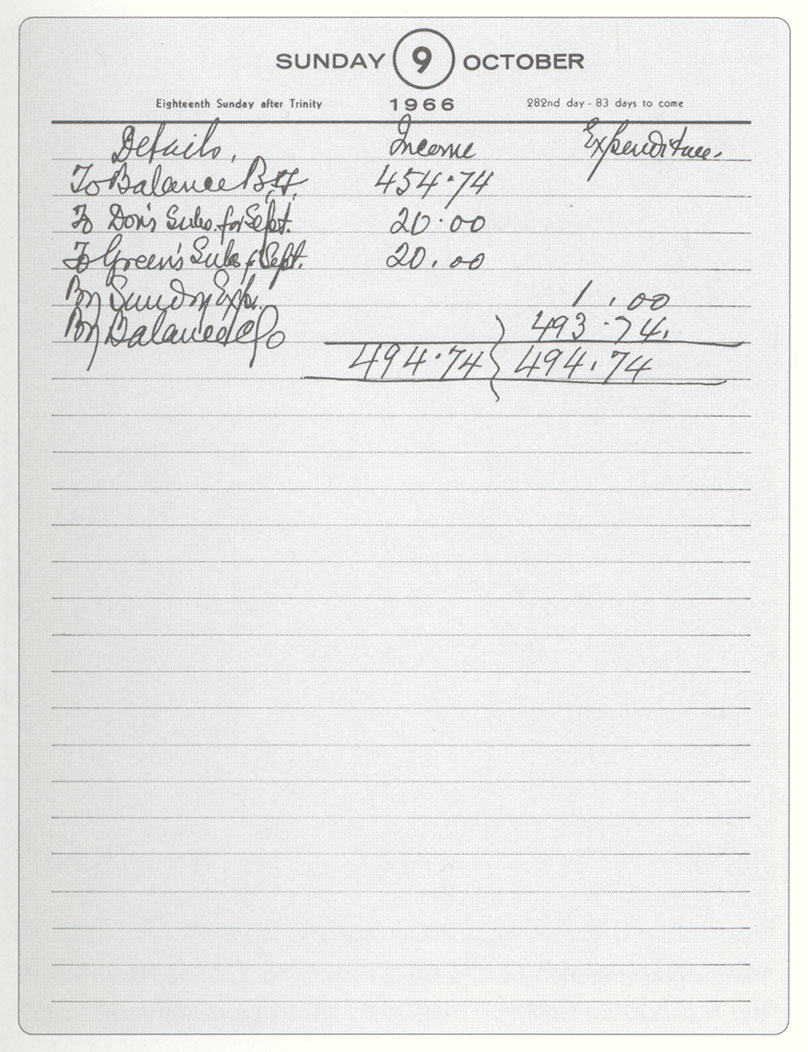 SUNDAY 9 OCTOBER
Eighteenth Sunday after Trinity 1966 282nd day - 83 days to come
Details. Income Expenditure.
To Balance B.F. 454.74
To Don's Subs. for Sept. 20.00
To Green's Subs f Sept. 20.00
By Sundry Exp. 1.00
By Balance C/o 493.74.
494.74 494.74